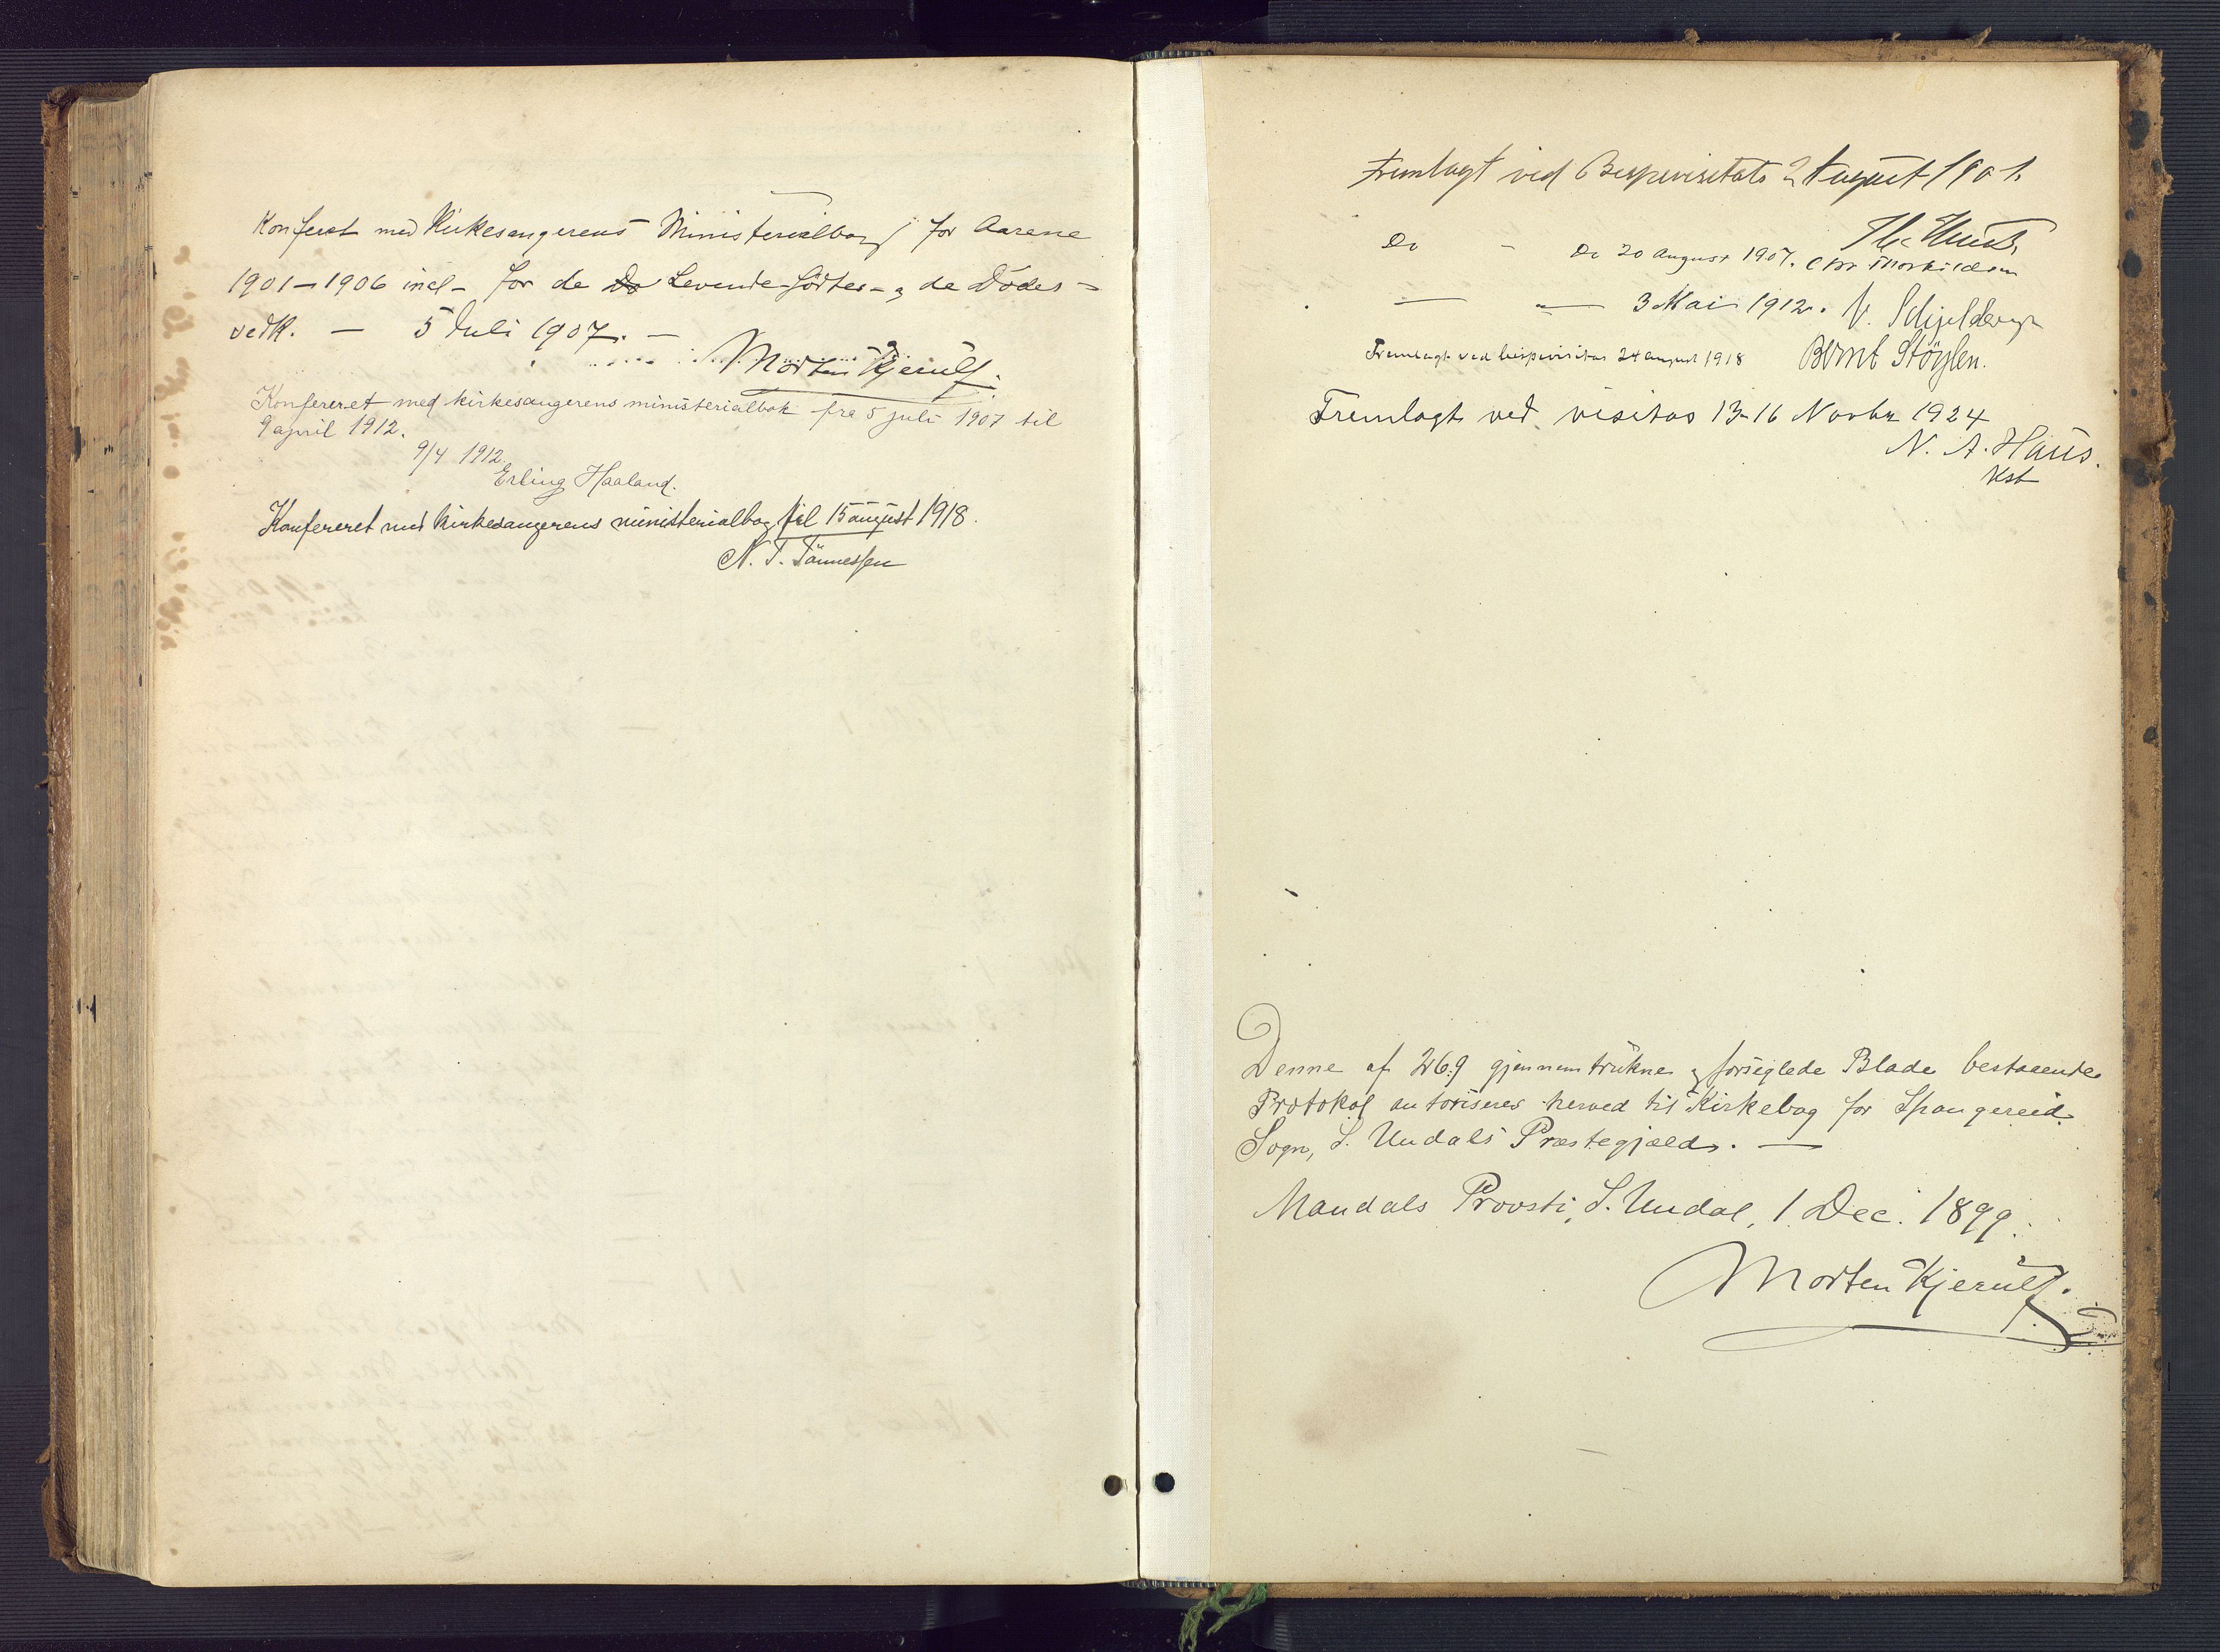 Konferet med Kirkesangerens Ministerialbog for Aarene
1901–1906 incl – for de Do Levende-fødtes- og de Dødes –
vedk. — 5 Juli 1907. —
Morten Kjerulf.
Konfereret med kirkesangerens ministerialbok fra 5 juli 1907 til
9 april 1912.
9/4 1912.
Erling Haaland.
Konfereret med kirkesangerens ministerialbog til 15 august 1918.
N. T. Tönnessen
Fremlagt ved Bispevisitats 2 August 1901.
Do – Do 20 August 1907. Chr Thorkildsen
— „ — 3 Mai 1912. V. Schjelderup
Fremlagt ved bispevisitas 24 august 1918 Bernt Støylen.
Fremlagt ved visitas 13-16 Novbr 1924
N. A. Haus.
Kst
Denne af 269 gjennemtrukne og forseglede Blade bestaaende
Protokol autoriseres herved til Kirkebog for Spangereid
Sogn, S. Undals Præstegjæld. —
Mandals Provsti, S. Undal, 1 Dec. 1899.
Morten Kjerulf.